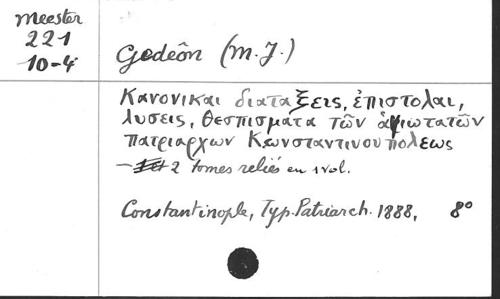 Meester
221
10-4
Gedeôn (M.J.)
Κανονικαι διαταξεις, ἐπιστολαι,
λυσεις, θεσπισματα τῶν ἁγιωτατῶν
πατριαρχων Κωνσταντινουπολεως
— 2 tomes reliés en 1 vol.
Constantinople, Typ. Patriarch. 1888, 8°